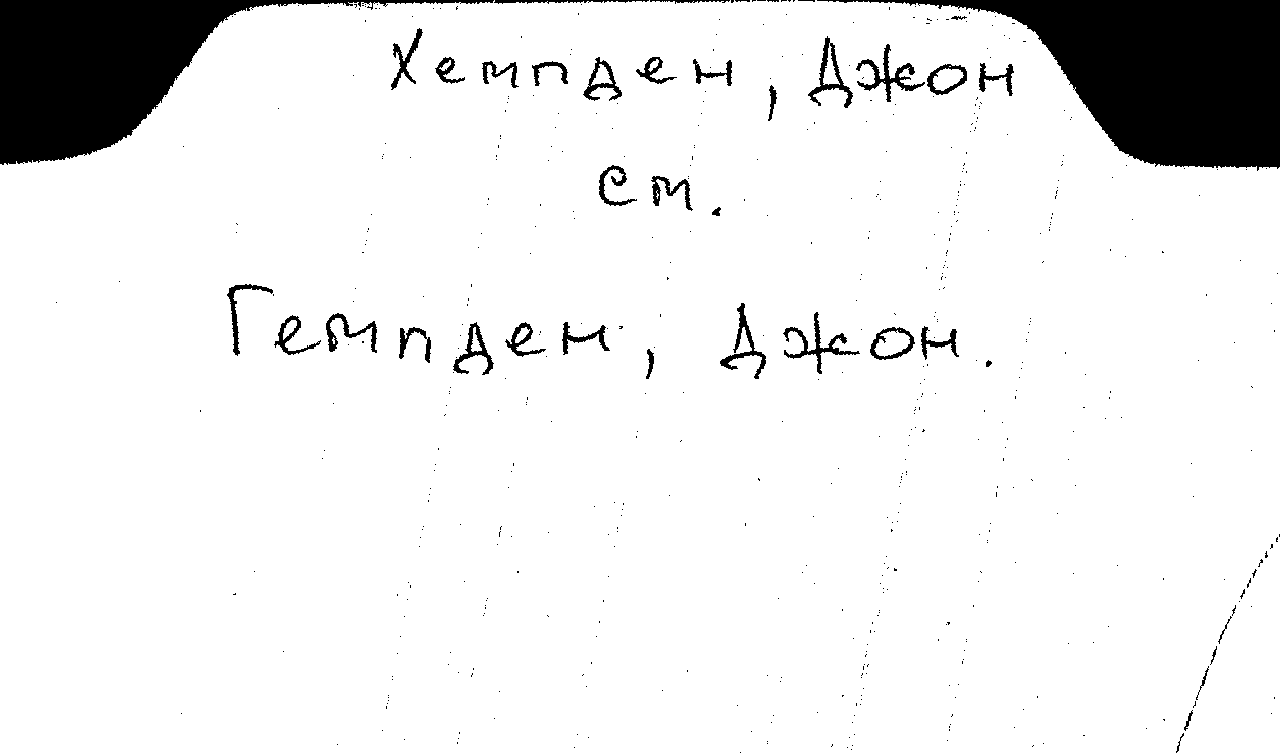 Хемпден, Джон
см.
Гемпден, Джон.